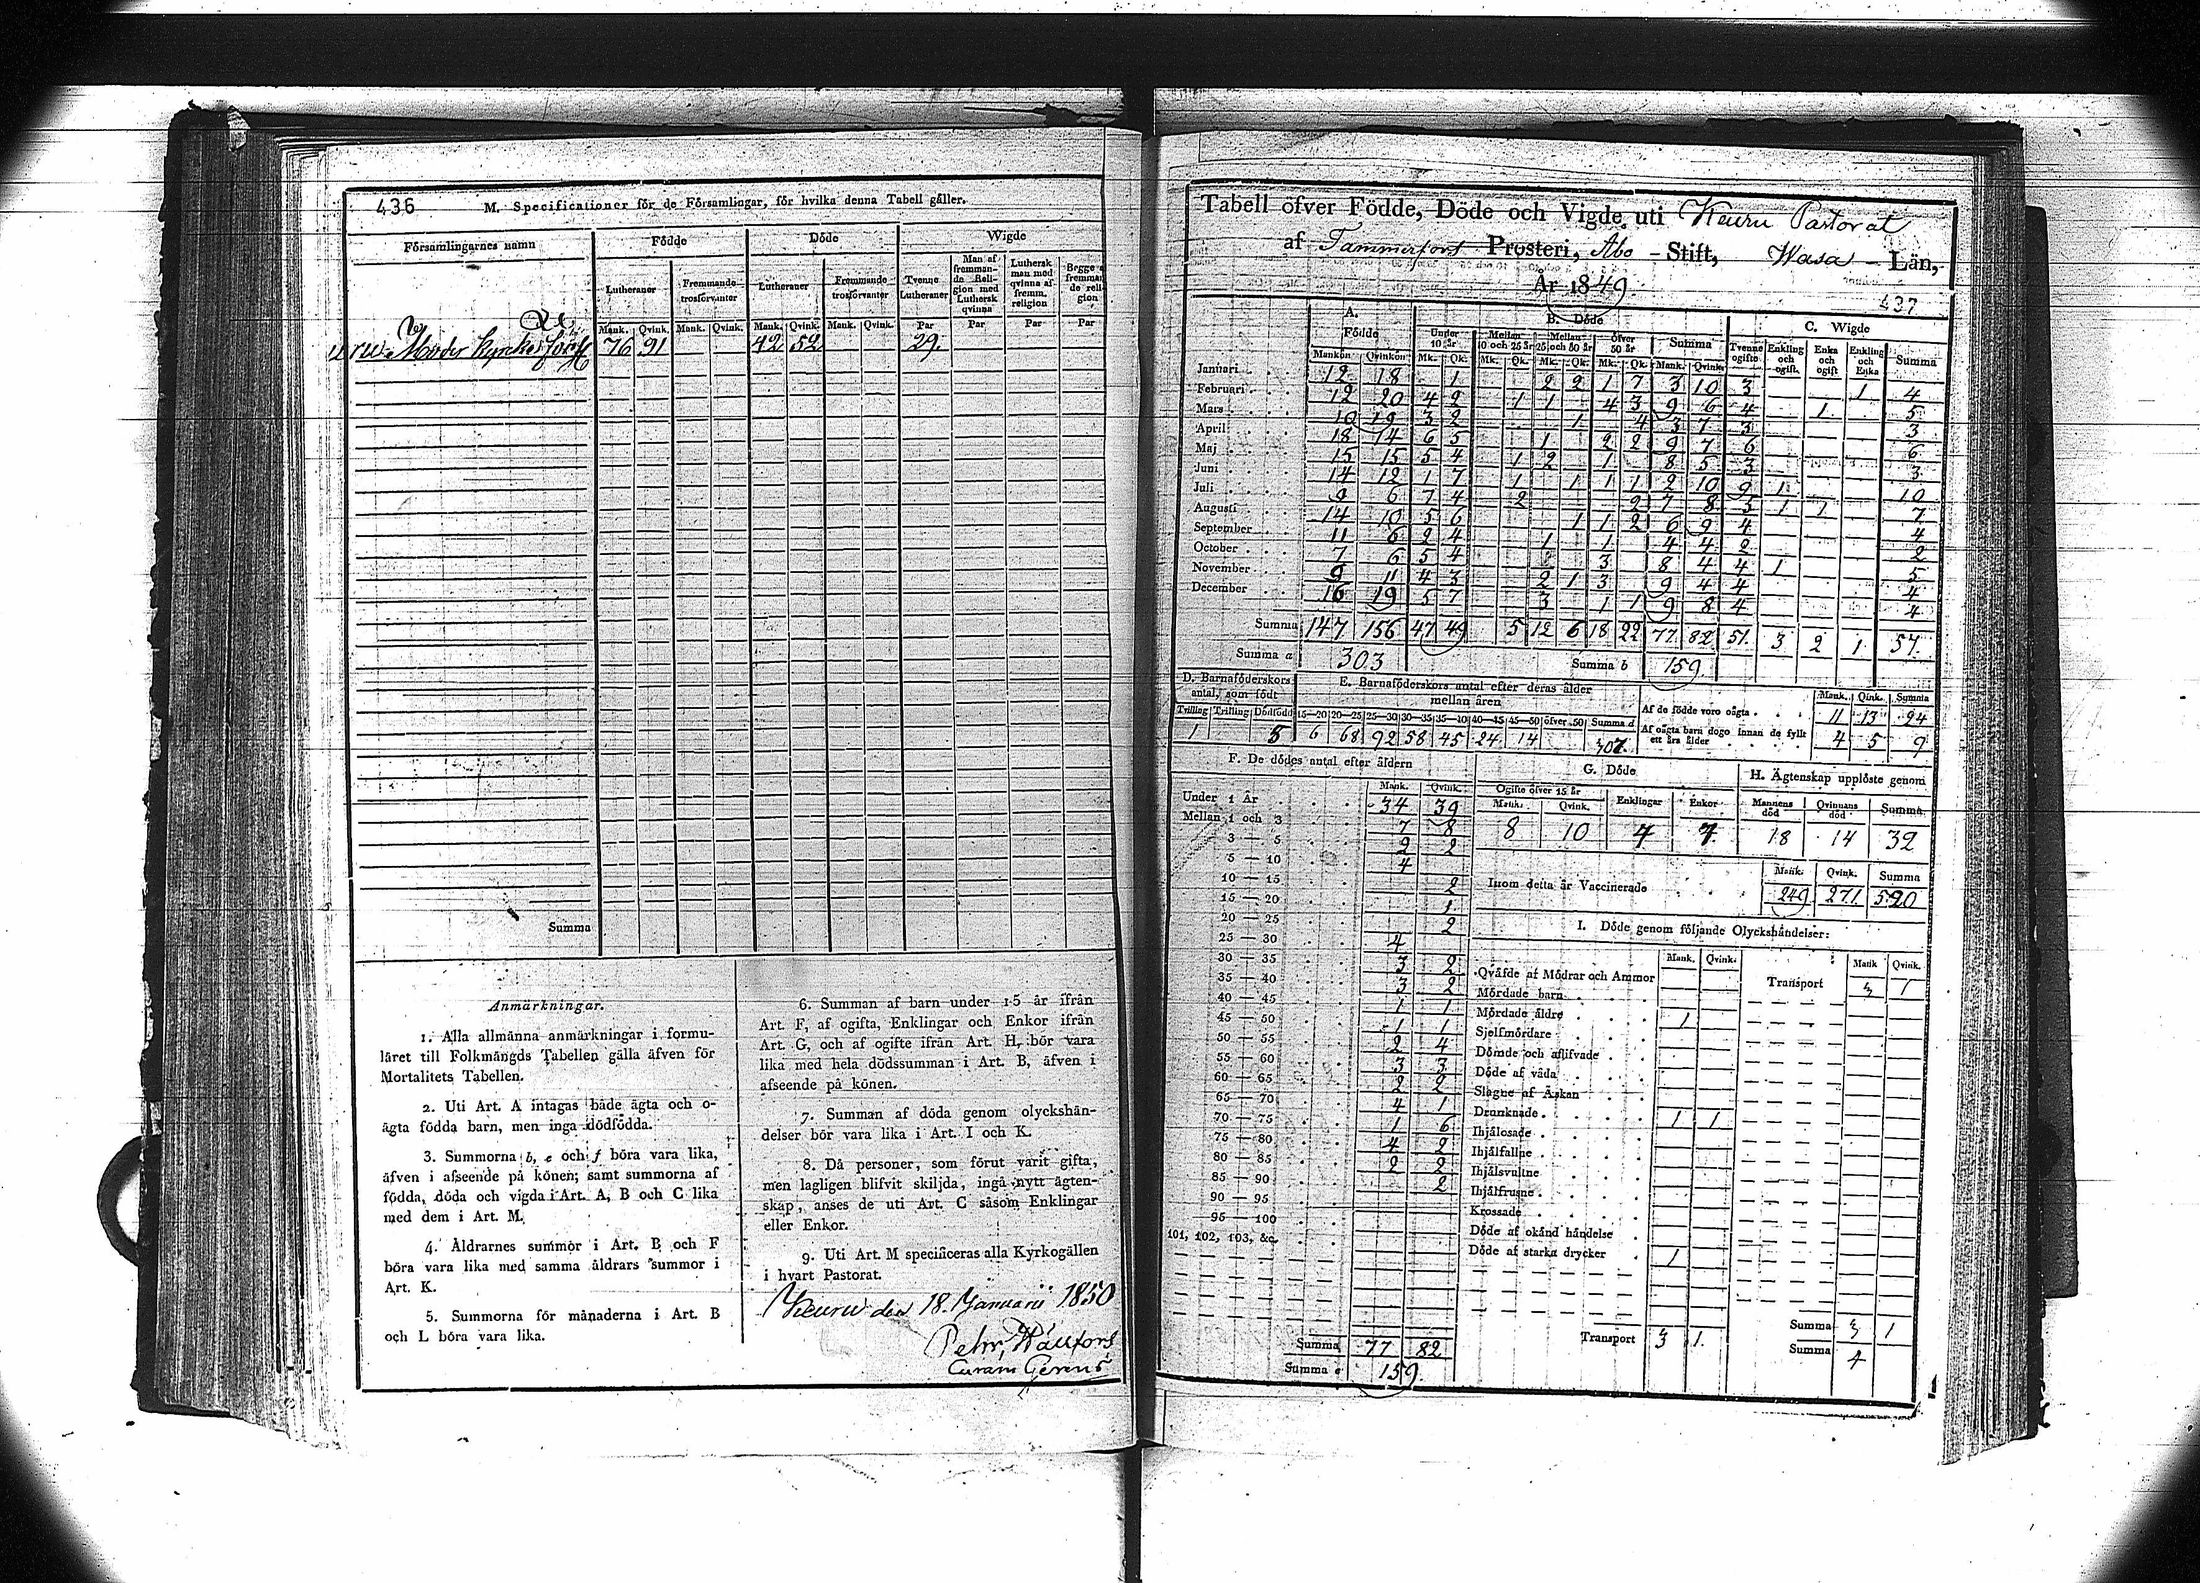 436 M. Specificationer för de Församlingar, för hvilka denna Tabell gäller.
Församlingarnes namn Födde Döde Wigde
Lutheraner Fremmande trosförvanter Lutheraner Fremmande trosförvanter Tvenne Lutheraner Man af fremmande Religion med Luthersk qvinna Luthersk man med qvinna af fremm. religion
Mank. Qvink. Mank. Qvink. Mank. Qvink. Mank. Qvink. Par Par Par Par
Moder Kyrko 76 91 42 52 29.
Summa
Anmärkningar.
1. Alla allmänna anmärkningar i formu-
läret till Folkmängds Tabellen gälla äfven för
Mortalitets Tabellen.
2. Uti Art. A intagas både ägta och o-
ägta födda barn, men inga dödfödda.
3. Summorna b, e och f böra vara lika,
äfven i afseende på könen; samt summorna af
födda, döda och vigda i Art. A, B och C lika
med dem i Art. M.
4. Åldrarnes summor i Art. B och F
böra vara lika med samma åldrars summor i
Art. K.
5. Summorna för månaderna i Art. B
och L böra vara lika.
6. Summan af barn under 15 år ifrån
Art. F, af ogifta, Enklingar och Enkor ifrån
Art. G, och af ogifte ifrån Art. H, bör vara
lika med hela dödssumman i Art. B, äfven i
afseende på könen.
7. Summan af döda genom olyckshän-
delser bör vara lika i Art. I och K.
8. Då personer, som förut varit gifta,
men lagligen blifvit skiljda, ingå nytt ägten-
skap, anses de uti Art. C såsom Enklingar
eller Enkor.
9. Uti Art. M specificeras alla Kyrkogällen
i hvart Pastorat.
Keuru den 18. Januarii 1850
Petr. Hällfors
Curam Gerens
Tabell öfver Födde, Döde och Vigde uti Keuru Pastorat
af Tammerfors Prosteri, Åbo - Stift, Wasa - Län,
År 1849.
437
A. Födde B. Döde C. Wigde
Under 10 år Mellan 10 och 25 år Mellan 25 och 50 år Öfver 50 år Summa Tvenne ogifte Enkling och ogift. Enka och ogift Enkling och Enka Summa
Mankön Qvinkön Mk. Qk. Mk. Qk. Mk. Qk. Mk. Qk. Mank. Qvink.
Januari 12 18 1 2 2 1 7 3 10 3 1 4
Februari 12 20 4 2 1 1 4 3 9 6 4 1 5
Mars 10 19 3 2 1 4 3 7 3 3
April 18 14 6 5 1 2 2 9 7 6 6
Maj 15 15 5 4 1 2 1 8 5 3 3
Juni 14 12 1 7 1 1 1 1 2 10 9 1 10
Juli 9 6 7 4 2 2 7 8 5 1 1 7
Augusti 14 10 5 6 1 1 2 6 9 4 4
September 11 6 2 4 1 1 4 4 2 2
October 7 6 5 4 3 8 4 4 1 5
November 9 11 4 3 2 1 3 9 4 4 4
December 16 19 5 7 3 1 1 9 8 4 4
Summa 147 156 47 49 5 12 6 18 22 77 82 51. 3 2 1 57.
Summa a 303 Summa b 159
D. Barnaföderskors antal, som födt
Tvilling Trilling Dödfödd
1 8
E. Barnaföderskors antal efter deras ålder
mellan åren
15—20 20—25 25—30 30—35 35—40 40—45 45—50 öfver 50 Summa d
6 68 92 58 45 24 14 307.
Mank. Qink. Summa
Af de födde voro oägta 11 13 24
Af oägta barn dogo innan de fyllt
ett års ålder 4 5 9
F. De dödes antal efter åldern
Mank. Qvink.
Under 1 År 34 39
Mellan 1 och 3 7 8
3 — 5 2 2
5 — 10 4
10 — 15 2
15 — 20 1
20 — 25 2
25 — 30 4
30 — 35 3 2
35 — 40 3 2
40 — 45 1 1
45 — 50 1 1
50 — 55 2 4
55 — 60 3 3
60 — 65 2 2
65 — 70 4 1
70 — 75 1 6
75 — 80 4 2
80 — 85 2 2
85 — 90 2
90 — 95
95 — 100
101, 102, 103, &c.
Summa 77 82
Summa e 159.
G. Döde
Ogifte öfver 15 år Enklingar Enkor
Mank. Qvink.
8 10 4 7.
H. Ägtenskap upplöste genom
Mannens död Qvinnans död Summa
18 14 32
Mank. Qvink. Summa
Inom detta år Vaccinerade 249 271. 520
I. Döde genom följande Olyckshändelser:
Mank. Qvink. Mank Qvink.
Qväfde af Mödrar och Ammor
Mördade barn
Mördade äldre 1
Sjelfmördare
Dömde och aflifvade
Döde af våda
Slagne af Åskan
Drunknade 1 1
Ihjälosade
Ihjälfallne
Ihjälsvultne
Ihjälfrusne
Krossade
Döde af okänd händelse
Döde af starka drycker 1
Transport 3 1.
Transport 3 1
Summa 3 1
Summa 4